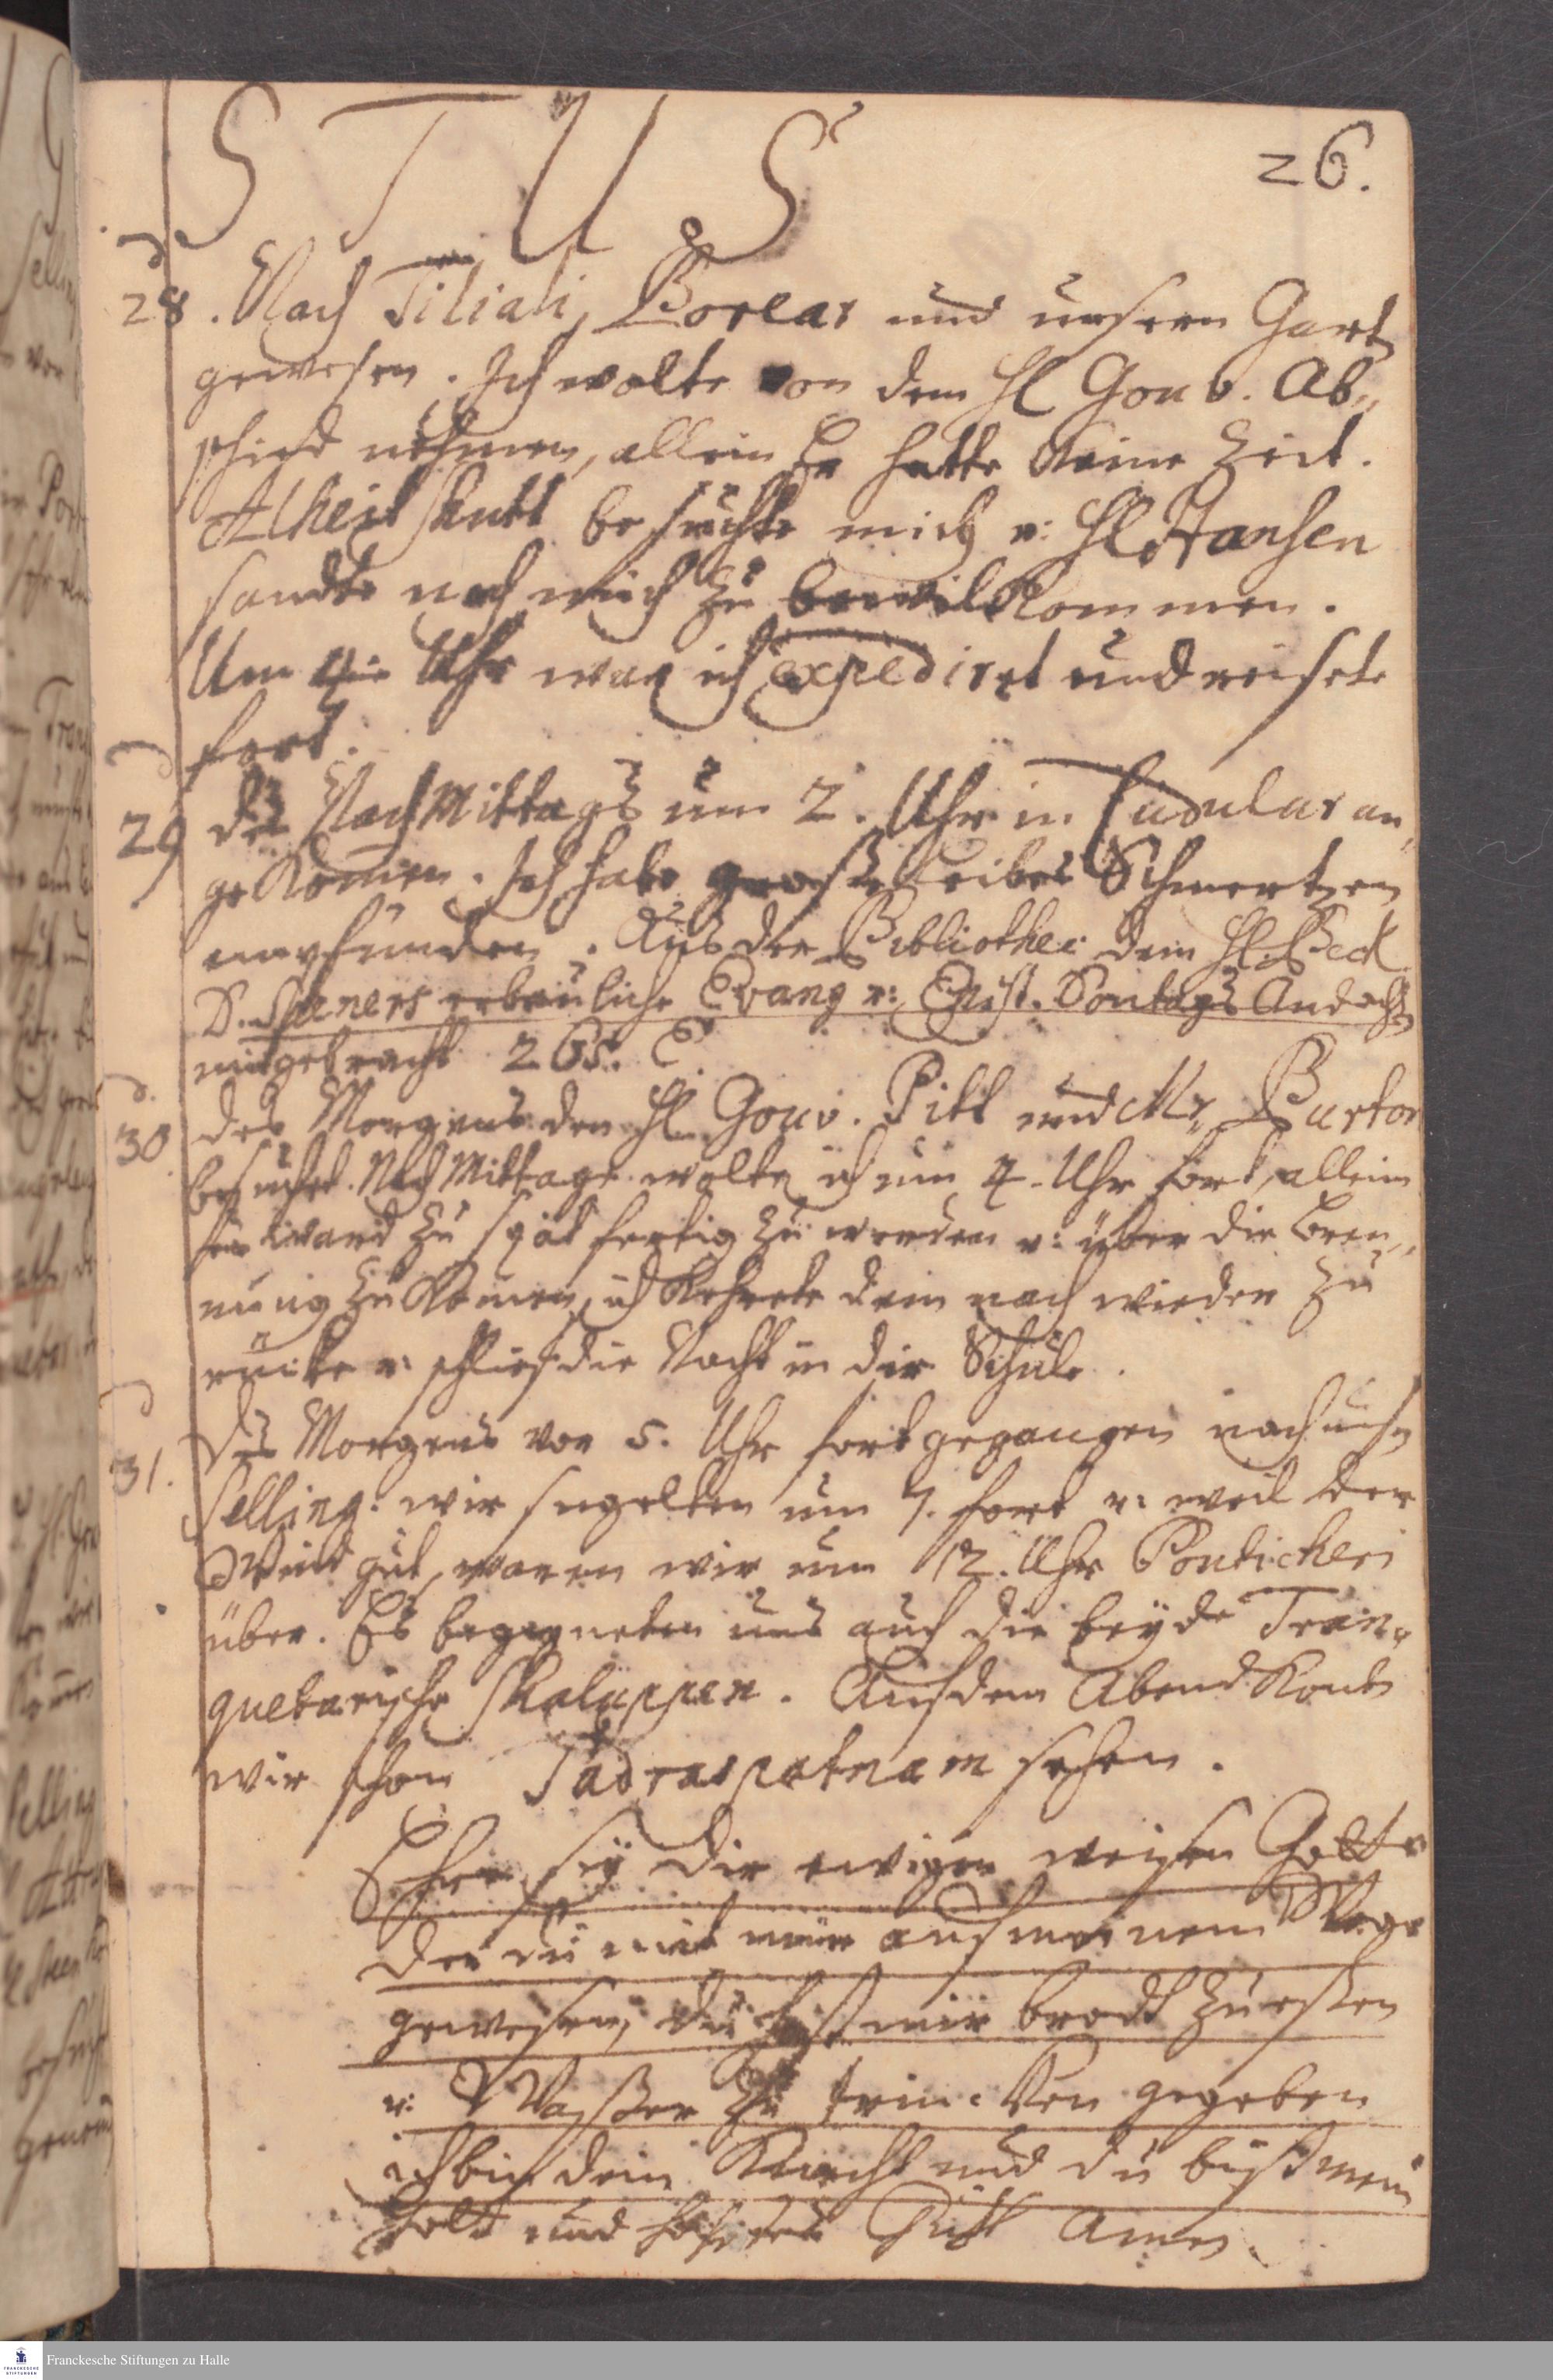 STUS
26.
d
28. Nach Tiliali,Borear und unsern Gart
gewesen. Ich wolte von dem Hl Gouv. Ab„
schied nehmen, allein Er hatte keine Zeit.
besuchte mich u: Hl Hansen
sandte nach mich zu bewilkommen.
Um Uhr war ich expediret und reisete
fort.
29 des NachMittags um 2. Uhr in Cudular an„
gekomen. Ich habe große Leibes Schmertzen
empfunden. Aus der Bibliothec dem Hl. Beck
D. Speners erbauliche Evang u: Epist. Sontags Andacht
mitgebracht
d.
30 des Morgens den Hl. Gouv. Pitt und Mr. Burton
besuchet. NachMittage wolte ich um 4. Uhr fort, allein
zu spät fertig zu werden u: über die Bren„
nung zu komen, ich kehrete dem nach wieder zu
rücke u: schlief die Nacht in der Schule.
31. des Morgens vor 5. Uhr fort gegangen nach unsn
Selling: wir segelten um 7. fort u: weil der
Wind gut, waren wir um 12. Uhr Ponticheri
über. Es begegneten uns auch die beyde Tran„
quebarische Skaluppen. Auf dem Abend konten
wir schon Sadraspatnam sehen.
Ehre sey dir ewigen weisen Gotte
der du mit mir auf meinem Wege
gewesen, du hast mir brodt zu eßen
u: Waßer zu trincken gegeben
ich bin dein Knecht und du bist mein
und Gutt Amen.
Franckesche Stiftungen zu Halle